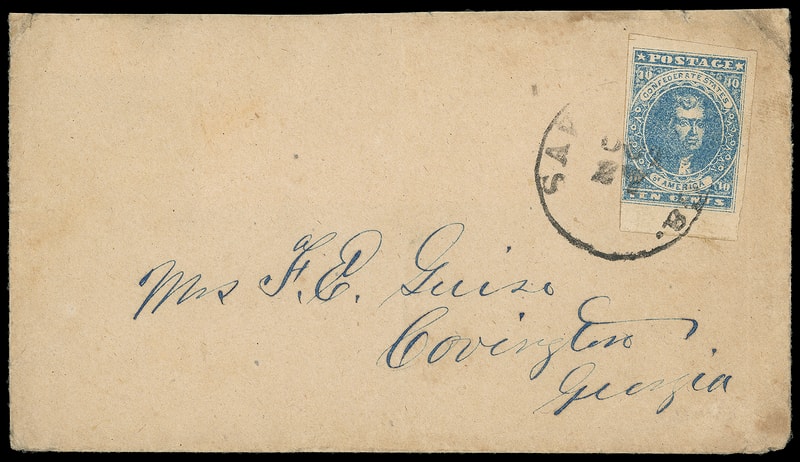 POSTAGE
10 10
CONFEDERATE STATES
OF AMERICA
10
CENTS
SA
Mrs F. E. Guise
Covington
Georgia